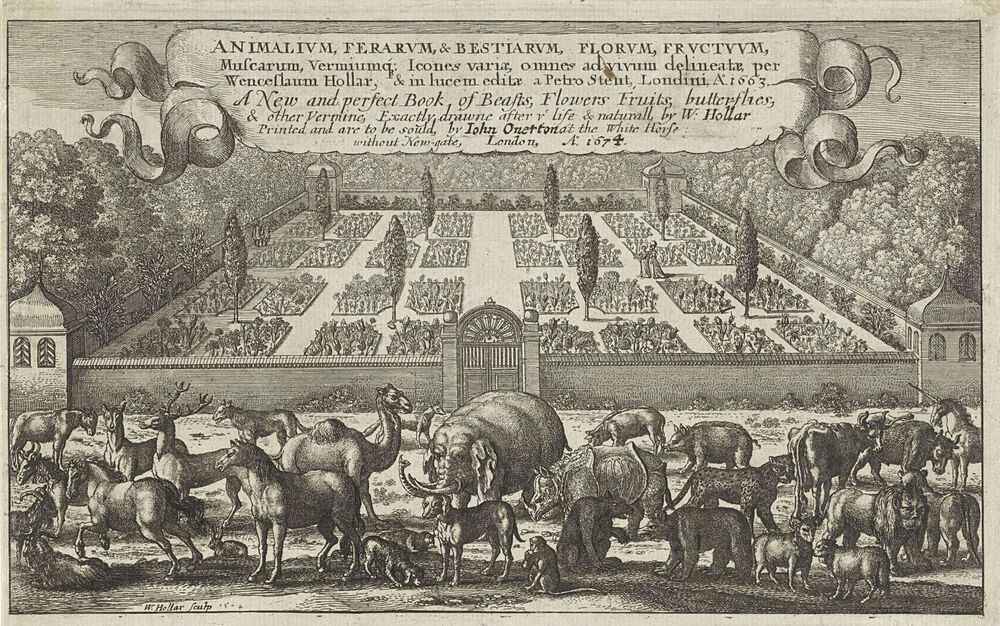 ANIMALIVM, FERARVM, & BESTIARVM, FLORVM, FRVCTVVM,
Muscarum, Vermiumq; Icones variæ, omnes ad vivum delineatæ per
Wenceslaum Hollar, & in lucem editæ a Petro Stent, Londini, Aº 1663.
A New and perfect Book, of Beasts, Flowers Fruits, butterflies,
& other Vermine, Exactly drawne after yᵉ life & naturall, by W: Hollar
Printed and are to be sould, by Iohn Overton at the White Horse
without New-gate, London, A: 1674.
W: Hollar sculp